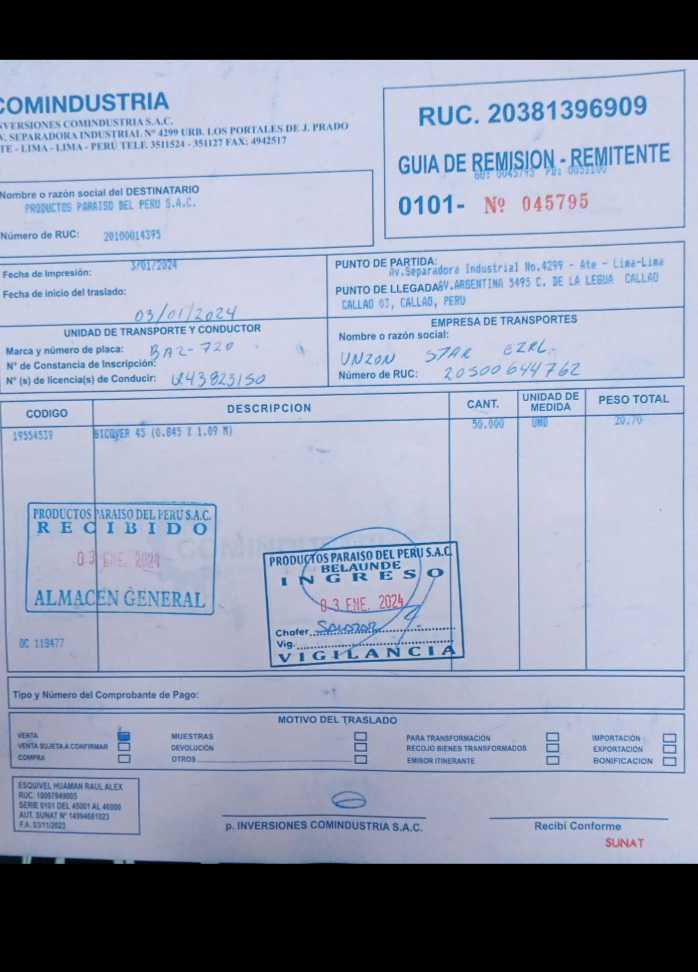 COMINDUSTRIA
INVERSIONES COMINDUSTRIA S.A.C.
AV. SEPARADORA INDUSTRIAL Nº 4299 URB. LOS PORTALES DE J. PRADO
ATE - LIMA - LIMA - PERÚ TELF. 3511524 - 351127 FAX: 4942517
RUC. 20381396909
GUIA DE REMISION - REMITENTE
0101- Nº 045795
Nombre o razón social del DESTINATARIO
PRODUCTOS PARAISO DEL PERU S.A.C.
Número de RUC: 20100014395
Fecha de Impresión: 3/01/2024
Fecha de inicio del traslado:
03/01/2024
PUNTO DE PARTIDA:
Av.Separadora Industrial No.4299 - Ate - Lima-Lima
PUNTO DE LLEGADA: AV.ARGENTINA 5495 C. DE LA LEGUA CALLAO
CALLAO 03, CALLAO, PERU
UNIDAD DE TRANSPORTE Y CONDUCTOR
Marca y número de placa: BAZ-720
Nº de Constancia de Inscripción:
Nº (s) de licencia(s) de Conducir: Q43823150
EMPRESA DE TRANSPORTES
Nombre o razón social:
UNION STAR EIRL.
Número de RUC: 20500644762
CODIGO DESCRIPCION CANT. UNIDAD DE MEDIDA PESO TOTAL
19554539 BICOVER 45 (0.845 X 1.09 M) 50.000 UND 20.70
PRODUCTOS PARAISO DEL PERU S.A.C.
RECIBIDO
03 ENE. 2024
ALMACEN GENERAL
COMINDUSTRIA
PRODUCTOS PARAISO DEL PERU S.A.C.
BELAUNDE
INGRESO
03 ENE. 2024
Chofer Salazar
Vig.
VIGILANCIA
OC 118477
Tipo y Número del Comprobante de Pago:
MOTIVO DEL TRASLADO
VENTA
VENTA SUJETA A CONFIRMAR
COMPRA
MUESTRAS
DEVOLUCIÓN
OTROS
PARA TRANSFORMACIÓN
RECOJO BIENES TRANSFORMADOS
EMISOR ITINERANTE
IMPORTACIÓN
EXPORTACIÓN
BONIFICACION
ESQUIVEL HUAMAN RAUL ALEX
RUC. 10097949005
SERIE 0101 DEL 45001 AL 46000
AUT. SUNAT Nº 14994681023
F.A. 03/11/2023
p. INVERSIONES COMINDUSTRIA S.A.C.
Recibí Conforme
SUNAT